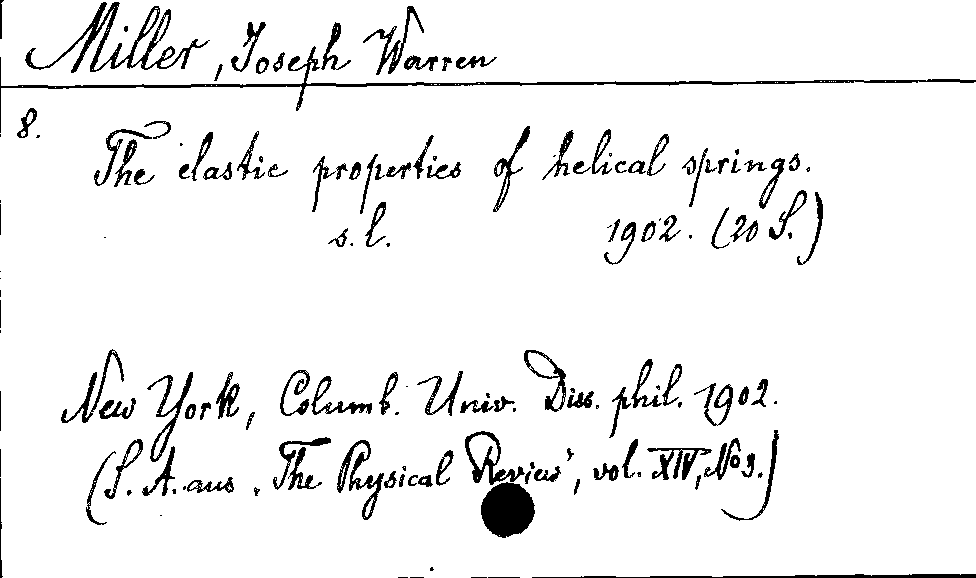 Miller, Joseph Warren
8.
The elastic properties of helical springs.
s. l. 1902. (20 S.)
New York, Columb. Univ. Diss. phil. 1902.
(S. A. aus „The Physical Review", vol. XIV, No 3.)